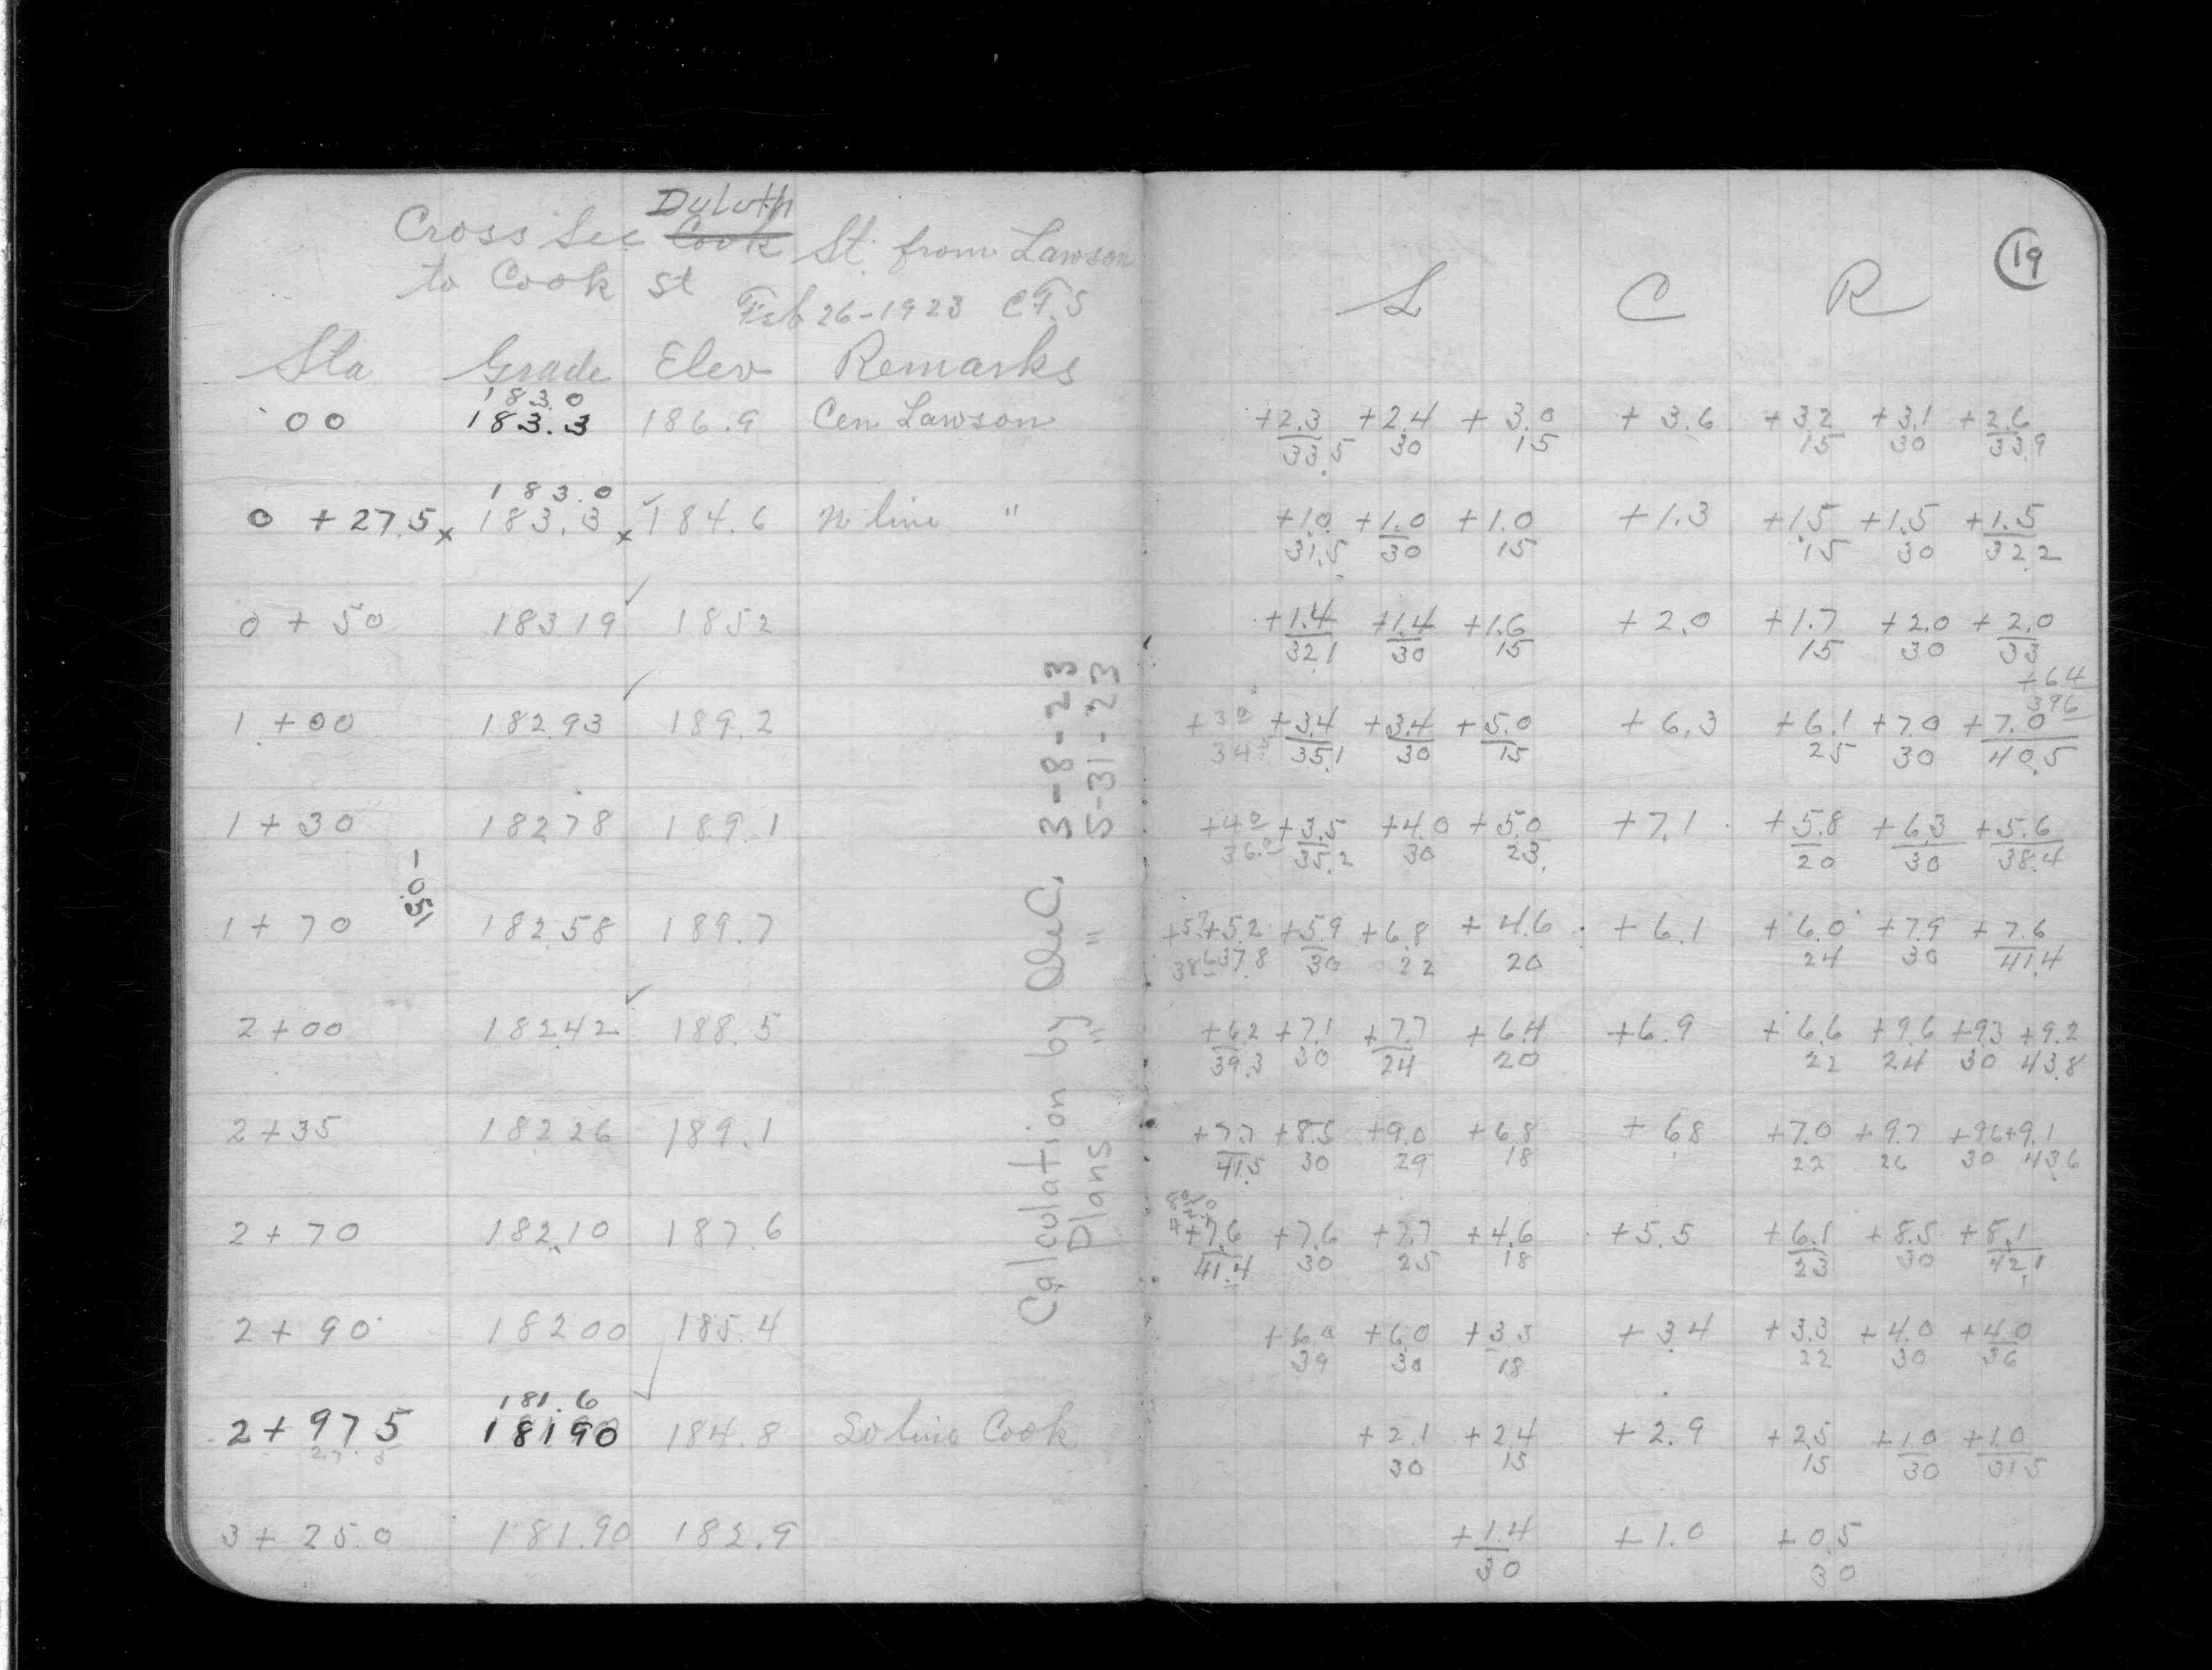 Duluth
Cross Sec Cook St. from Lawson
to Cook st
Feb 26-1923 C.F.S
19
L C R
Sta Grade Elev Remarks
183.0
00 183.3 186.9 Cen Lawson +2.3 +2.4 +3.0 +3.6 +3.2 +3.1 +2.6
33.5 30 15 15 30 33.9
183.0
0 + 27.5 x 183.3 x 184.6 N line " +1.0 +1.0 +1.0 +1.3 +1.5 +1.5 +1.5
31.5 30 15 15 30 32.2
0 + 50 183.19 185.2 +1.4 +1.4 +1.6 +2.0 +1.7 +2.0 +2.0
32.1 30 15 15 30 33
+6.4
39.6
1 + 00 182.93 189.2 +3.4 +3.4 +5.0 +6.3 +6.1 +7.0 +7.0
35.1 30 15 25 30 40.5
1 + 30 182.78 189.1 +4.0 +3.5 +4.0 +5.0 +7.1 +5.8 +6.3 +5.6
36.0 35.2 30 23 20 30 38.4
-.50-
1 + 70 182.58 189.7 +5.2 +5.9 +6.8 +4.6 +6.1 +6.0 +7.9 +7.6
38.6 37.8 30 22 20 24 30 41.4
2 + 00 182.42 188.5 +6.2 +7.1 +7.7 +6.4 +6.9 +6.6 +9.6 +9.3 +9.2
39.3 30 24 20 22 24 30 43.8
2 + 35 182.26 189.1 +7.7 +8.5 +9.0 +6.8 +6.8 +7.0 +9.7 +9.6 +9.1
41.5 30 29 18 22 26 30 43.6
2 + 70 182.10 187.6 +7.6 +7.6 +7.7 +4.6 +5.5 +6.1 +8.5 +8.1
41.4 30 25 18 23 30 42.1
2 + 90 182.00 185.4 +6.0 +6.0 +3.3 +3.4 +3.3 +4.0 +4.0
39 30 18 22 30 36
181.6
2 + 97.5 181.90 184.8 So line Cook +2.1 +2.4 +2.9 +2.5 +1.0 +1.0
30 15 15 30 31.5
3 + 25.0 181.90 182.9 +1.4 +1.0 +0.5
30 30
Calculation by 3-8-23
Plans " " 5-31-23